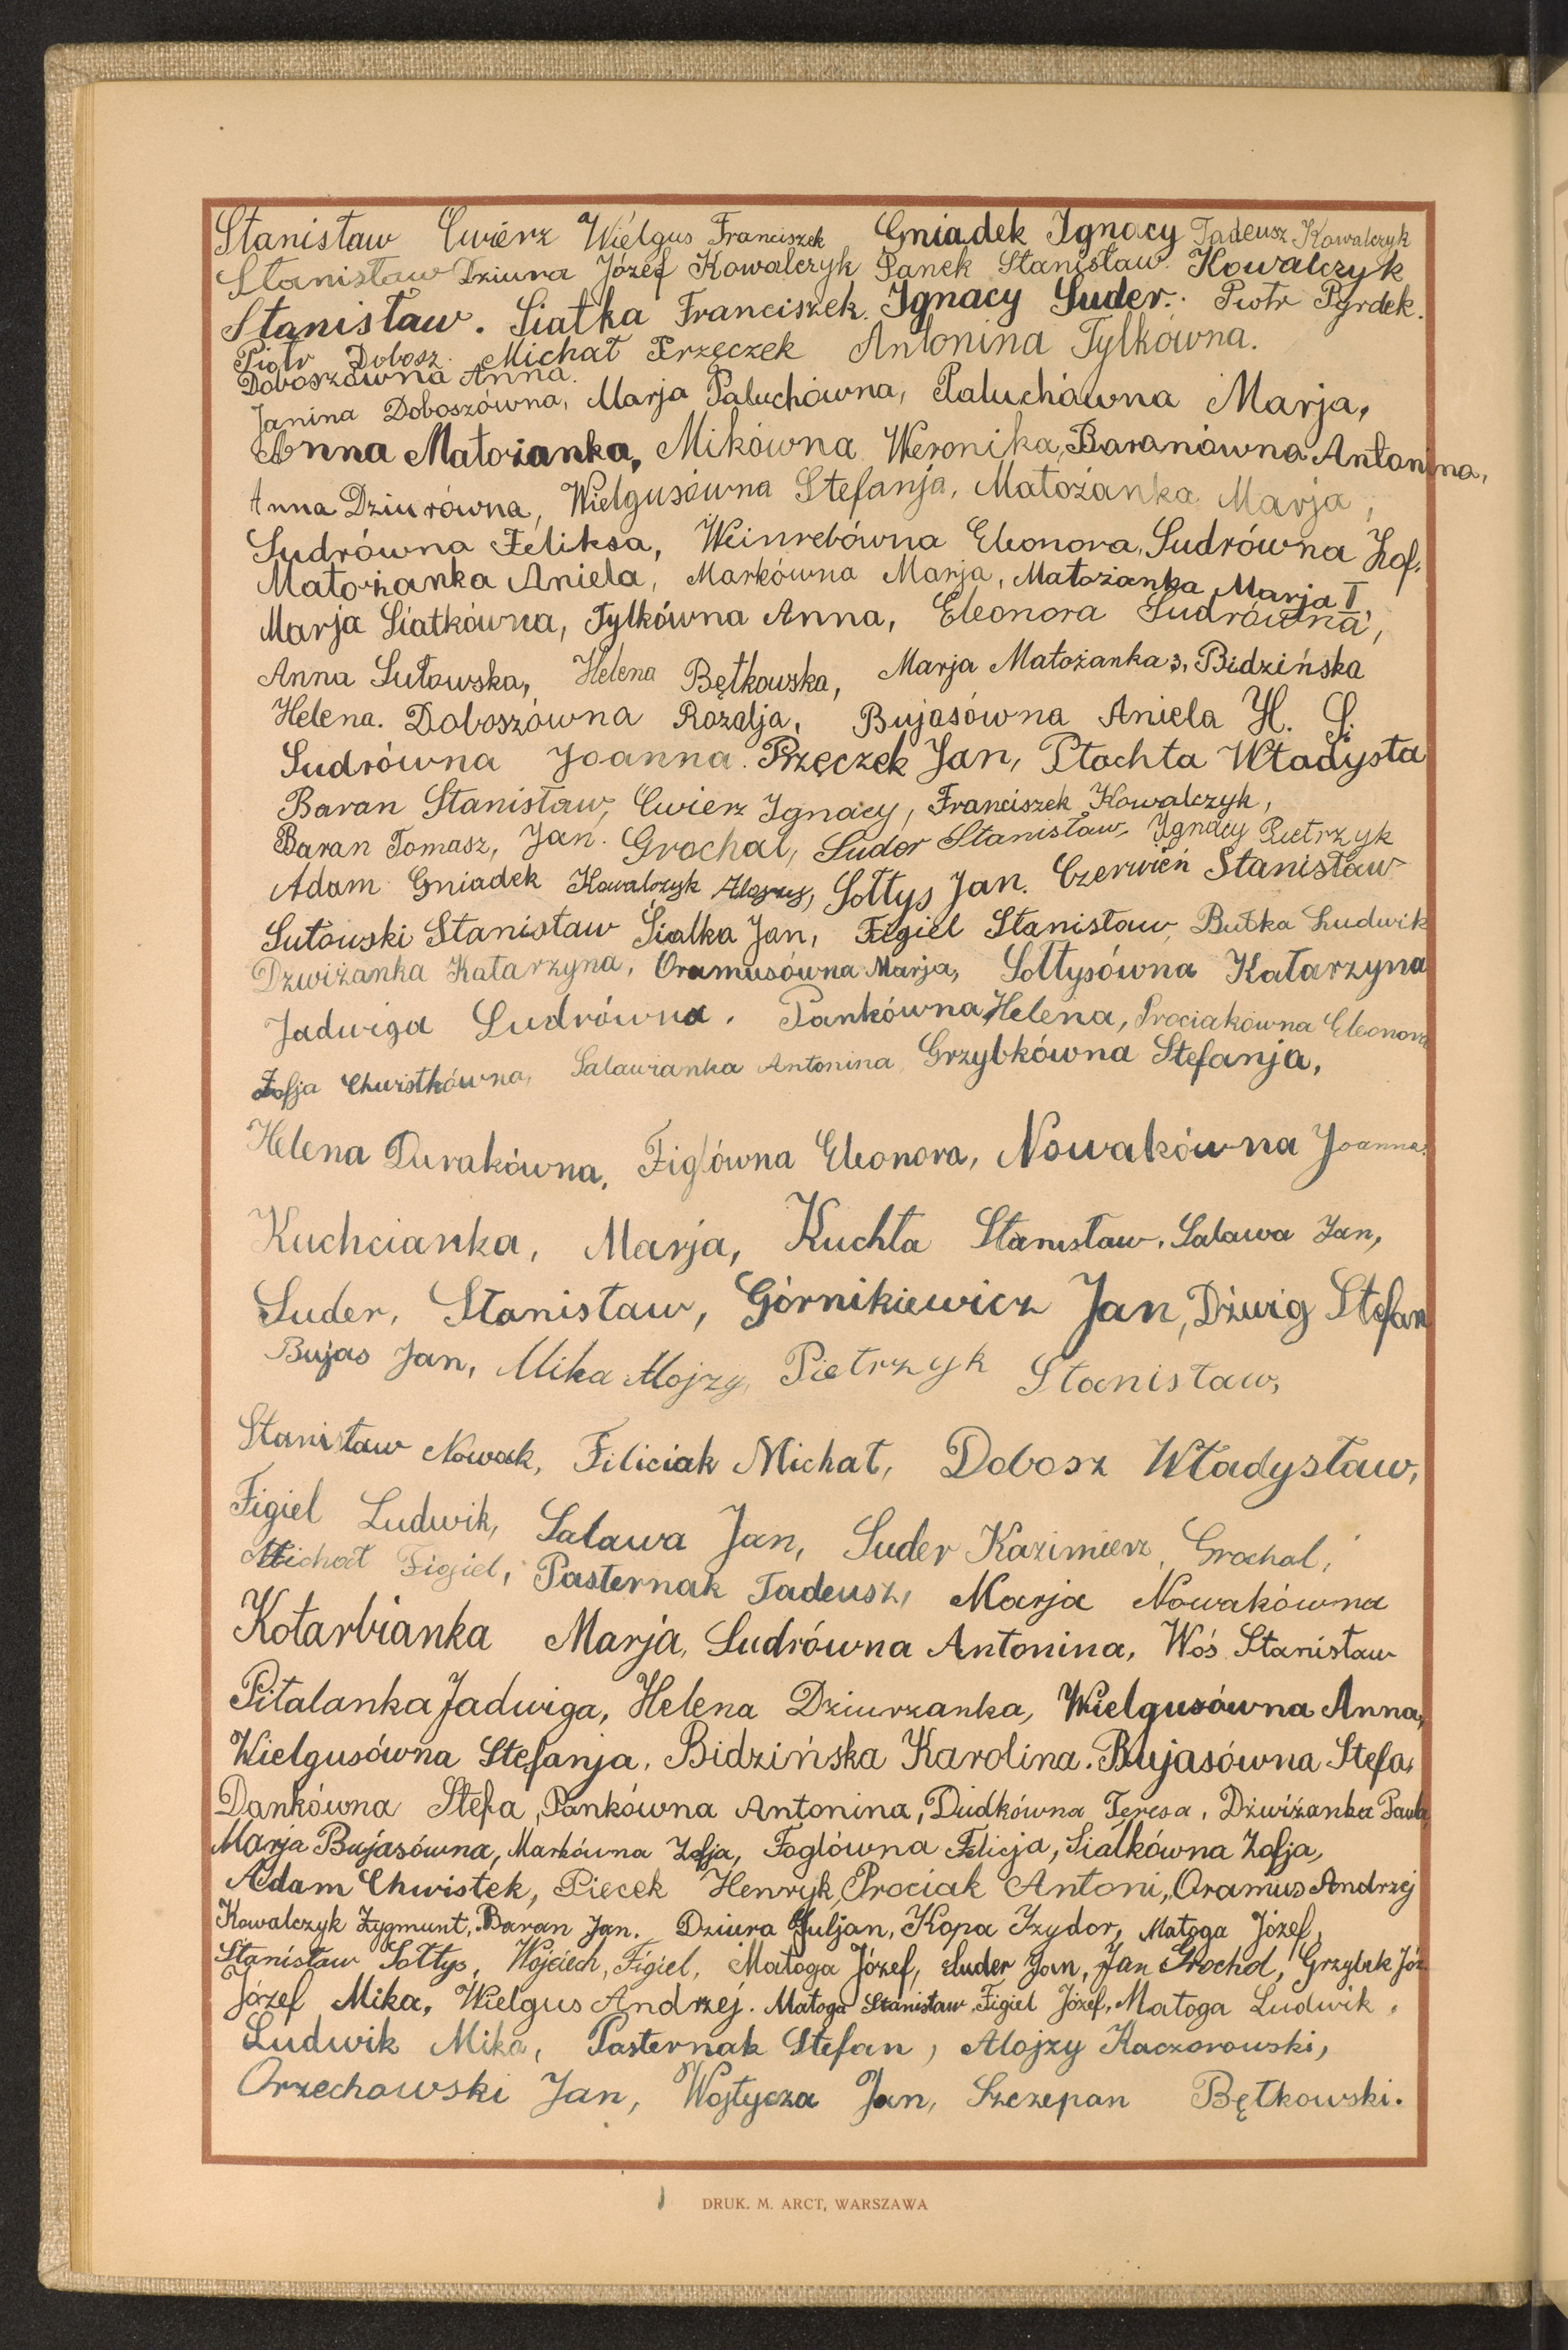 Stanisław Ćwierz Wielgus Franciszek Gniadek Ignacy Tadeusz Kowalczyk
Stanisław Dziura Józef Kowalczyk Panek Stanisław Kowalczyk
Stanisław. Siatka Franciszek. Ignacy Suder. Piotr Pyrdek.
Piotr Dobosz. Michał Przęczek Antonina Tylkówna.
Doboszówna Anna.
Janina Doboszówna, Marja Paluchówna, Paluchówna Marja,
Anna Matożanka, Mikówna Weronika, Baranówna Antonina,
Anna Dziurówna, Wielgusówna Stefanja, Matożanka Marja,
Sudrówna Feliksa, Weinrebówna Eleonora, Sudrówna Zof.
Matożanka Aniela, Markówna Marja, Matożanka Marja I,
Marja Siatkówna, Tylkówna Anna, Eleonora Sudrówna,
Anna Sutowska, Helena Bętkowska, Marja Matożanka 3, Bidzińska
Helena. Doboszówna Rozalja, Bujasówna Aniela H. S.
Sudrówna Joanna. Przęczek Jan, Płachta Władysła
Baran Stanisław, Ćwierz Ignacy, Franciszek Kowalczyk,
Baran Tomasz, Jan. Grochal, Suder Stanisław, Ignacy Pietrzyk
Adam Gniadek Kowalczyk Alojzy, Sołtys Jan. Czerwień Stanisław
Sutowski Stanisław Siatka Jan, Figiel Stanisław, Butka Ludwik
Dzwiżanka Katarzyna, Oramusówna Marja, Sołtysówna Katarzyna
Jadwiga Sudrówna. Pankówna Helena, Prociakówna Eleonora
Zofja Chwistkówna, Salawianka Antonina, Grzybkówna Stefanja,
Helena Durakówna, Figlówna Eleonora, Nowakówna Joanna.
Kuchcianka, Marja, Kuchta Stanisław, Salawa Jan,
Suder, Stanisław, Górnikiewicz Jan, Dźwig Stefan
Bujas Jan, Mika Alojzy, Pietrzyk Stanisław,
Stanisław Nowak, Filiciak Michał, Dobosz Władysław,
Figiel Ludwik, Salawa Jan, Suder Kazimierz, Grochal,
Michał Figiel, Pasternak Tadeusz, Marja Nowakówna
Kotarbianka Marja, Sudrówna Antonina, Woś Stanisław
Pitalanka Jadwiga, Helena Dziurzanka, Wielgusówna Anna,
Wielgusówna Stefanja, Bidzińska Karolina. Bujasówna Stefa,
Dankówna Stefa, Pankówna Antonina, Dudkówna Teresa, Dźwiżanka Paula,
Marja Bujasówna, Markówna Zofja, Foglówna Felicja, Siatkówna Zofja,
Adam Chwistek, Piecek Henryk, Prociak Antoni, Oramus Andrzej
Kowalczyk Zygmunt, Baran Jan. Dziura Juljan, Kopa Izydor, Matoga Józef,
Stanisław Sołtys, Wojciech, Figiel, Matoga Józef, Suder Jan, Jan Grochol, Grzybek Józ
Józef Mika, Wielgus Andrzej. Matoga Stanisław, Figiel Józef, Matoga Ludwik.
Ludwik Mika, Pasternak Stefan, Alojzy Kaczorowski,
Orzechowski Jan, Wojtycza Jan, Szczepan Bętkowski.
DRUK. M. ARCT, WARSZAWA